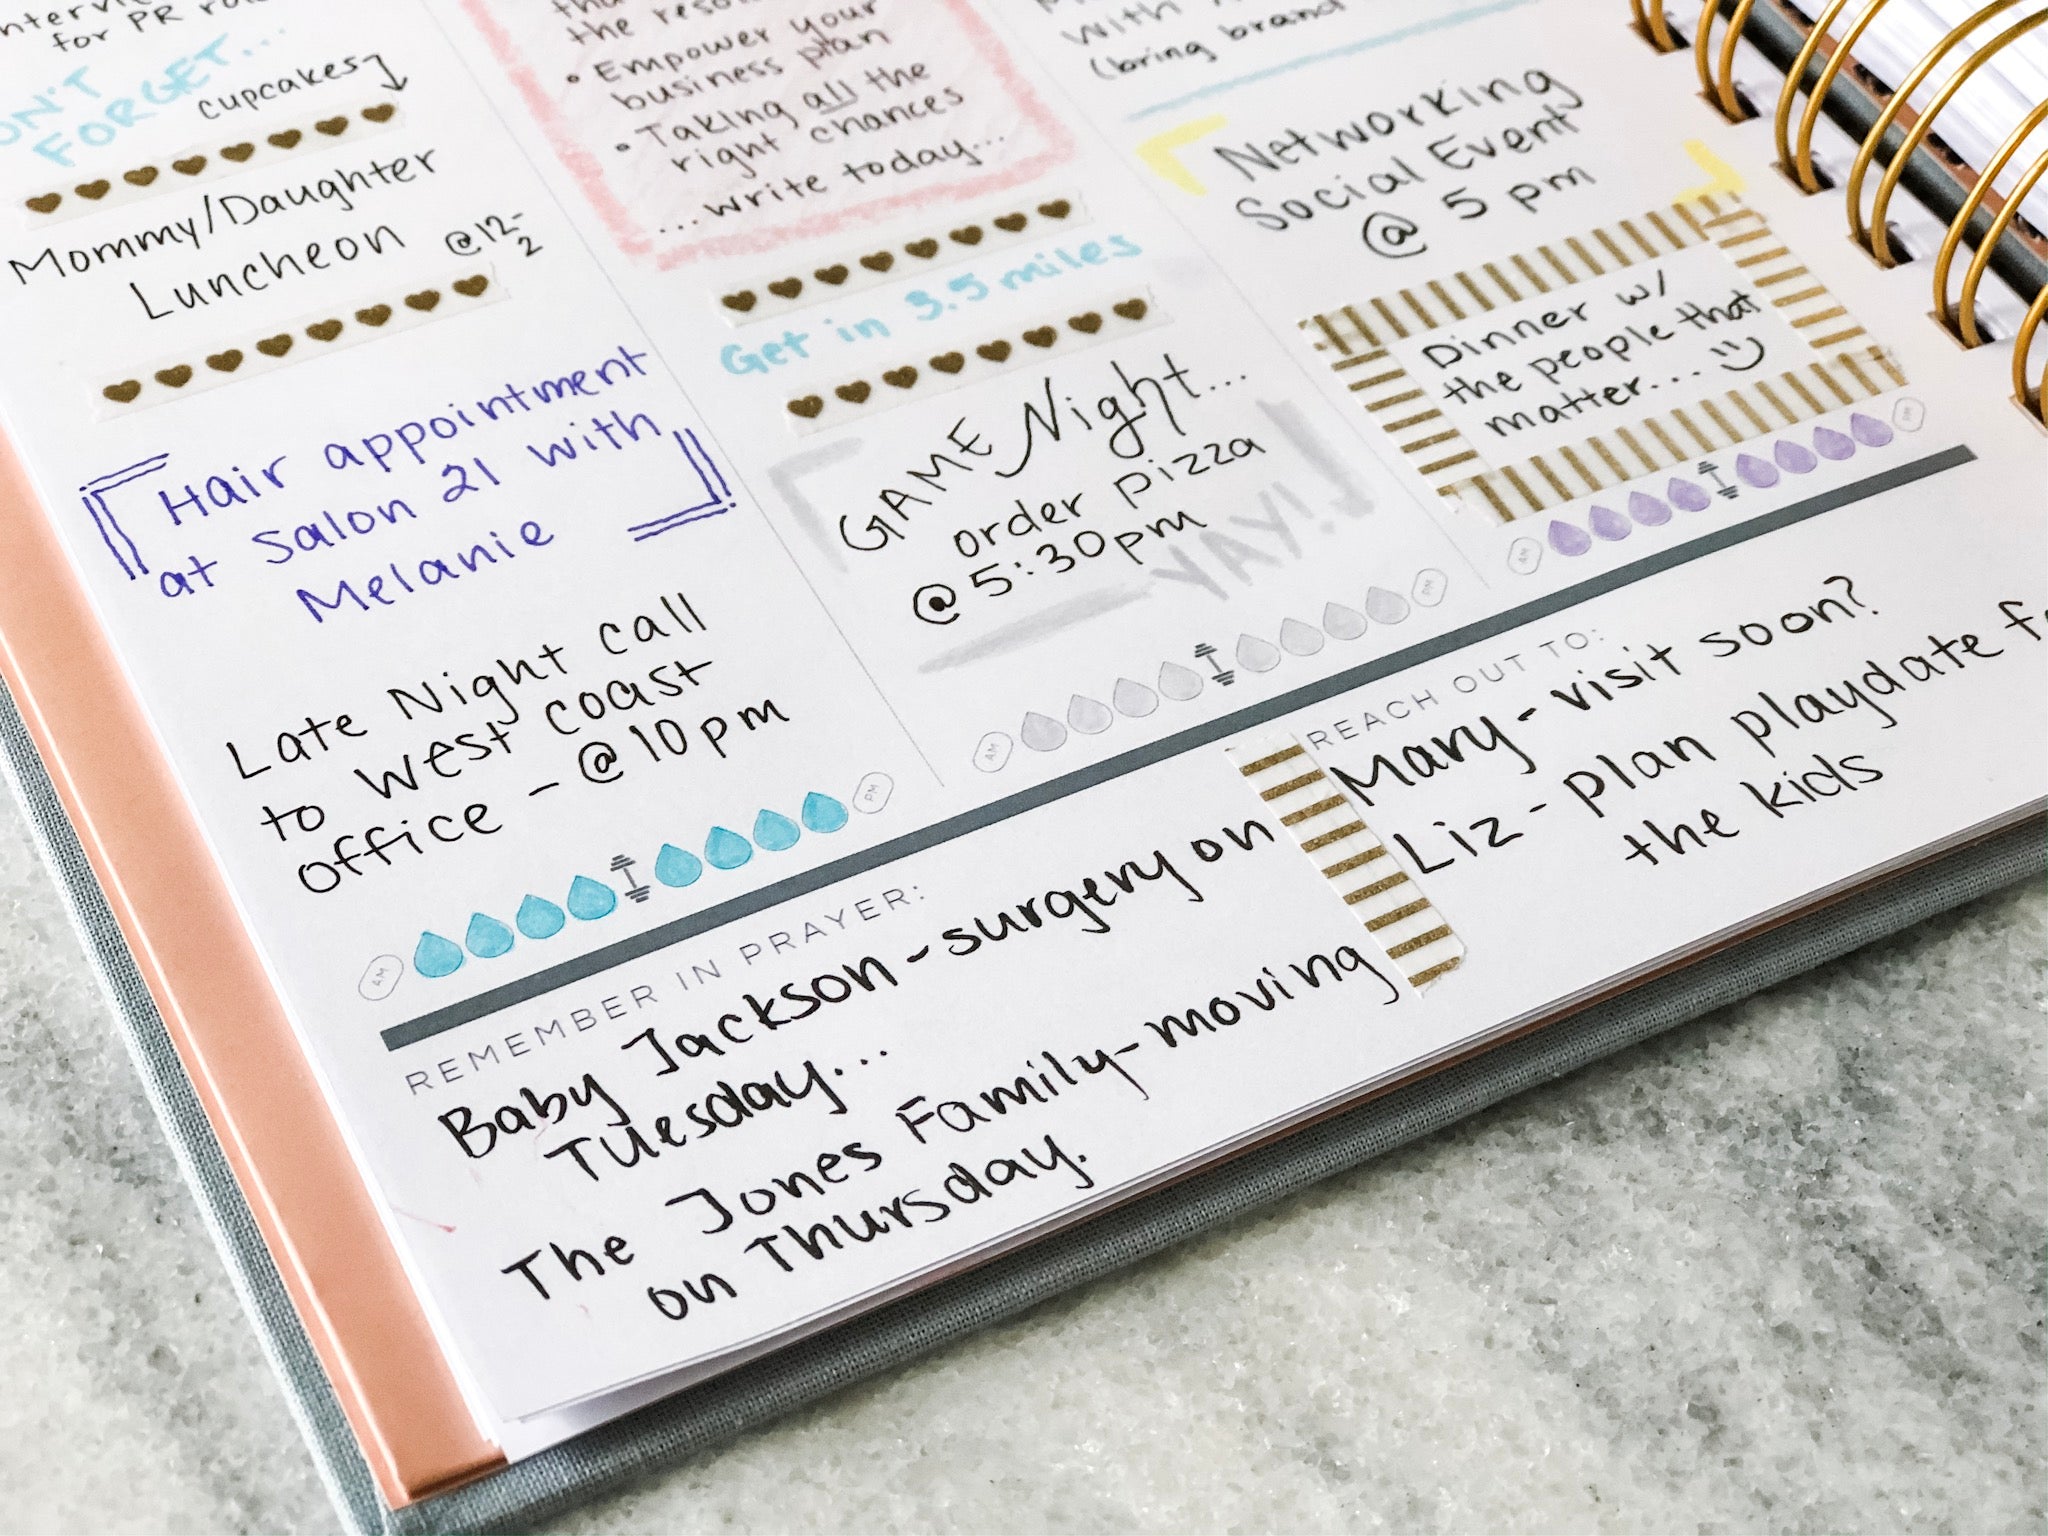 for PR
DON'T
FORGET...
cupcakes
Mommy/Daughter
Luncheon @12-
2
Hair appointment
at Salon 21 with
Melanie
Late Night call
to West coast
office - @10pm
AM
PM
the
• Empower your
business plan
• Taking all the
right chances
...write today...
Get in 3.5 miles
GAME Night...
order pizza
@ 5:30pm
YAY!
AM
PM
with
(bring brand
Networking
Social Event
@ 5 pm
Dinner w/
the people that
matter... :)
AM
PM
REMEMBER IN PRAYER:
Baby Jackson - surgery on
Tuesday...
The Jones Family - moving
on Thursday.
REACH OUT TO:
Mary - visit soon?
Liz - plan playdate
the kids